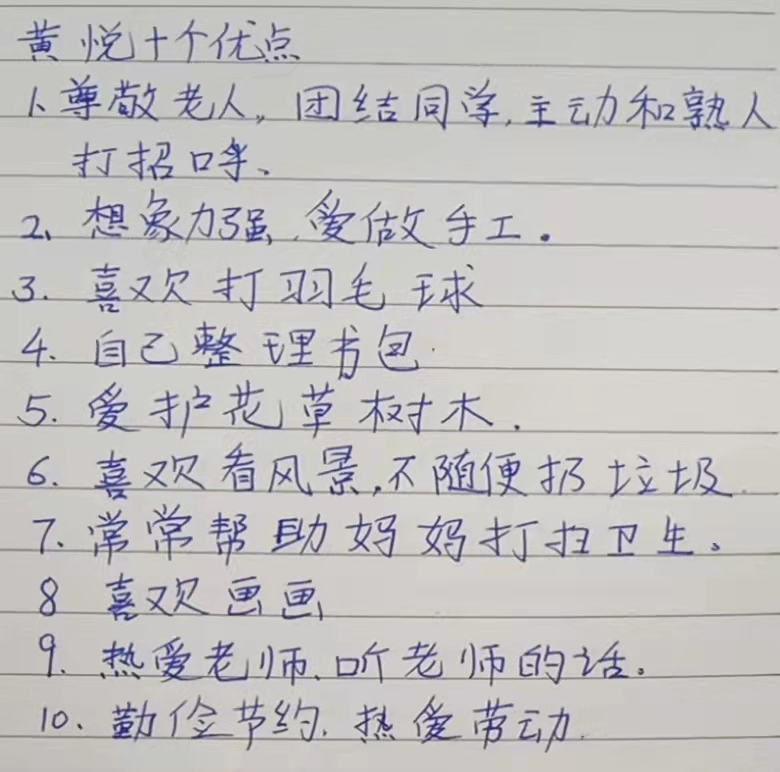 黄悦十个优点
1、尊敬老人,团结同学,主动和熟人
打招呼、
2、想象力强,爱做手工。
3.喜欢打羽毛球
4.自己整理书包.
5.爱护花草树木.
6.喜欢看风景,不随便扔垃圾.
7.常常帮助妈妈打扫卫生。
8 喜欢画画
9.热爱老师、听老师的话.
10.勤俭节约.热爱劳动.